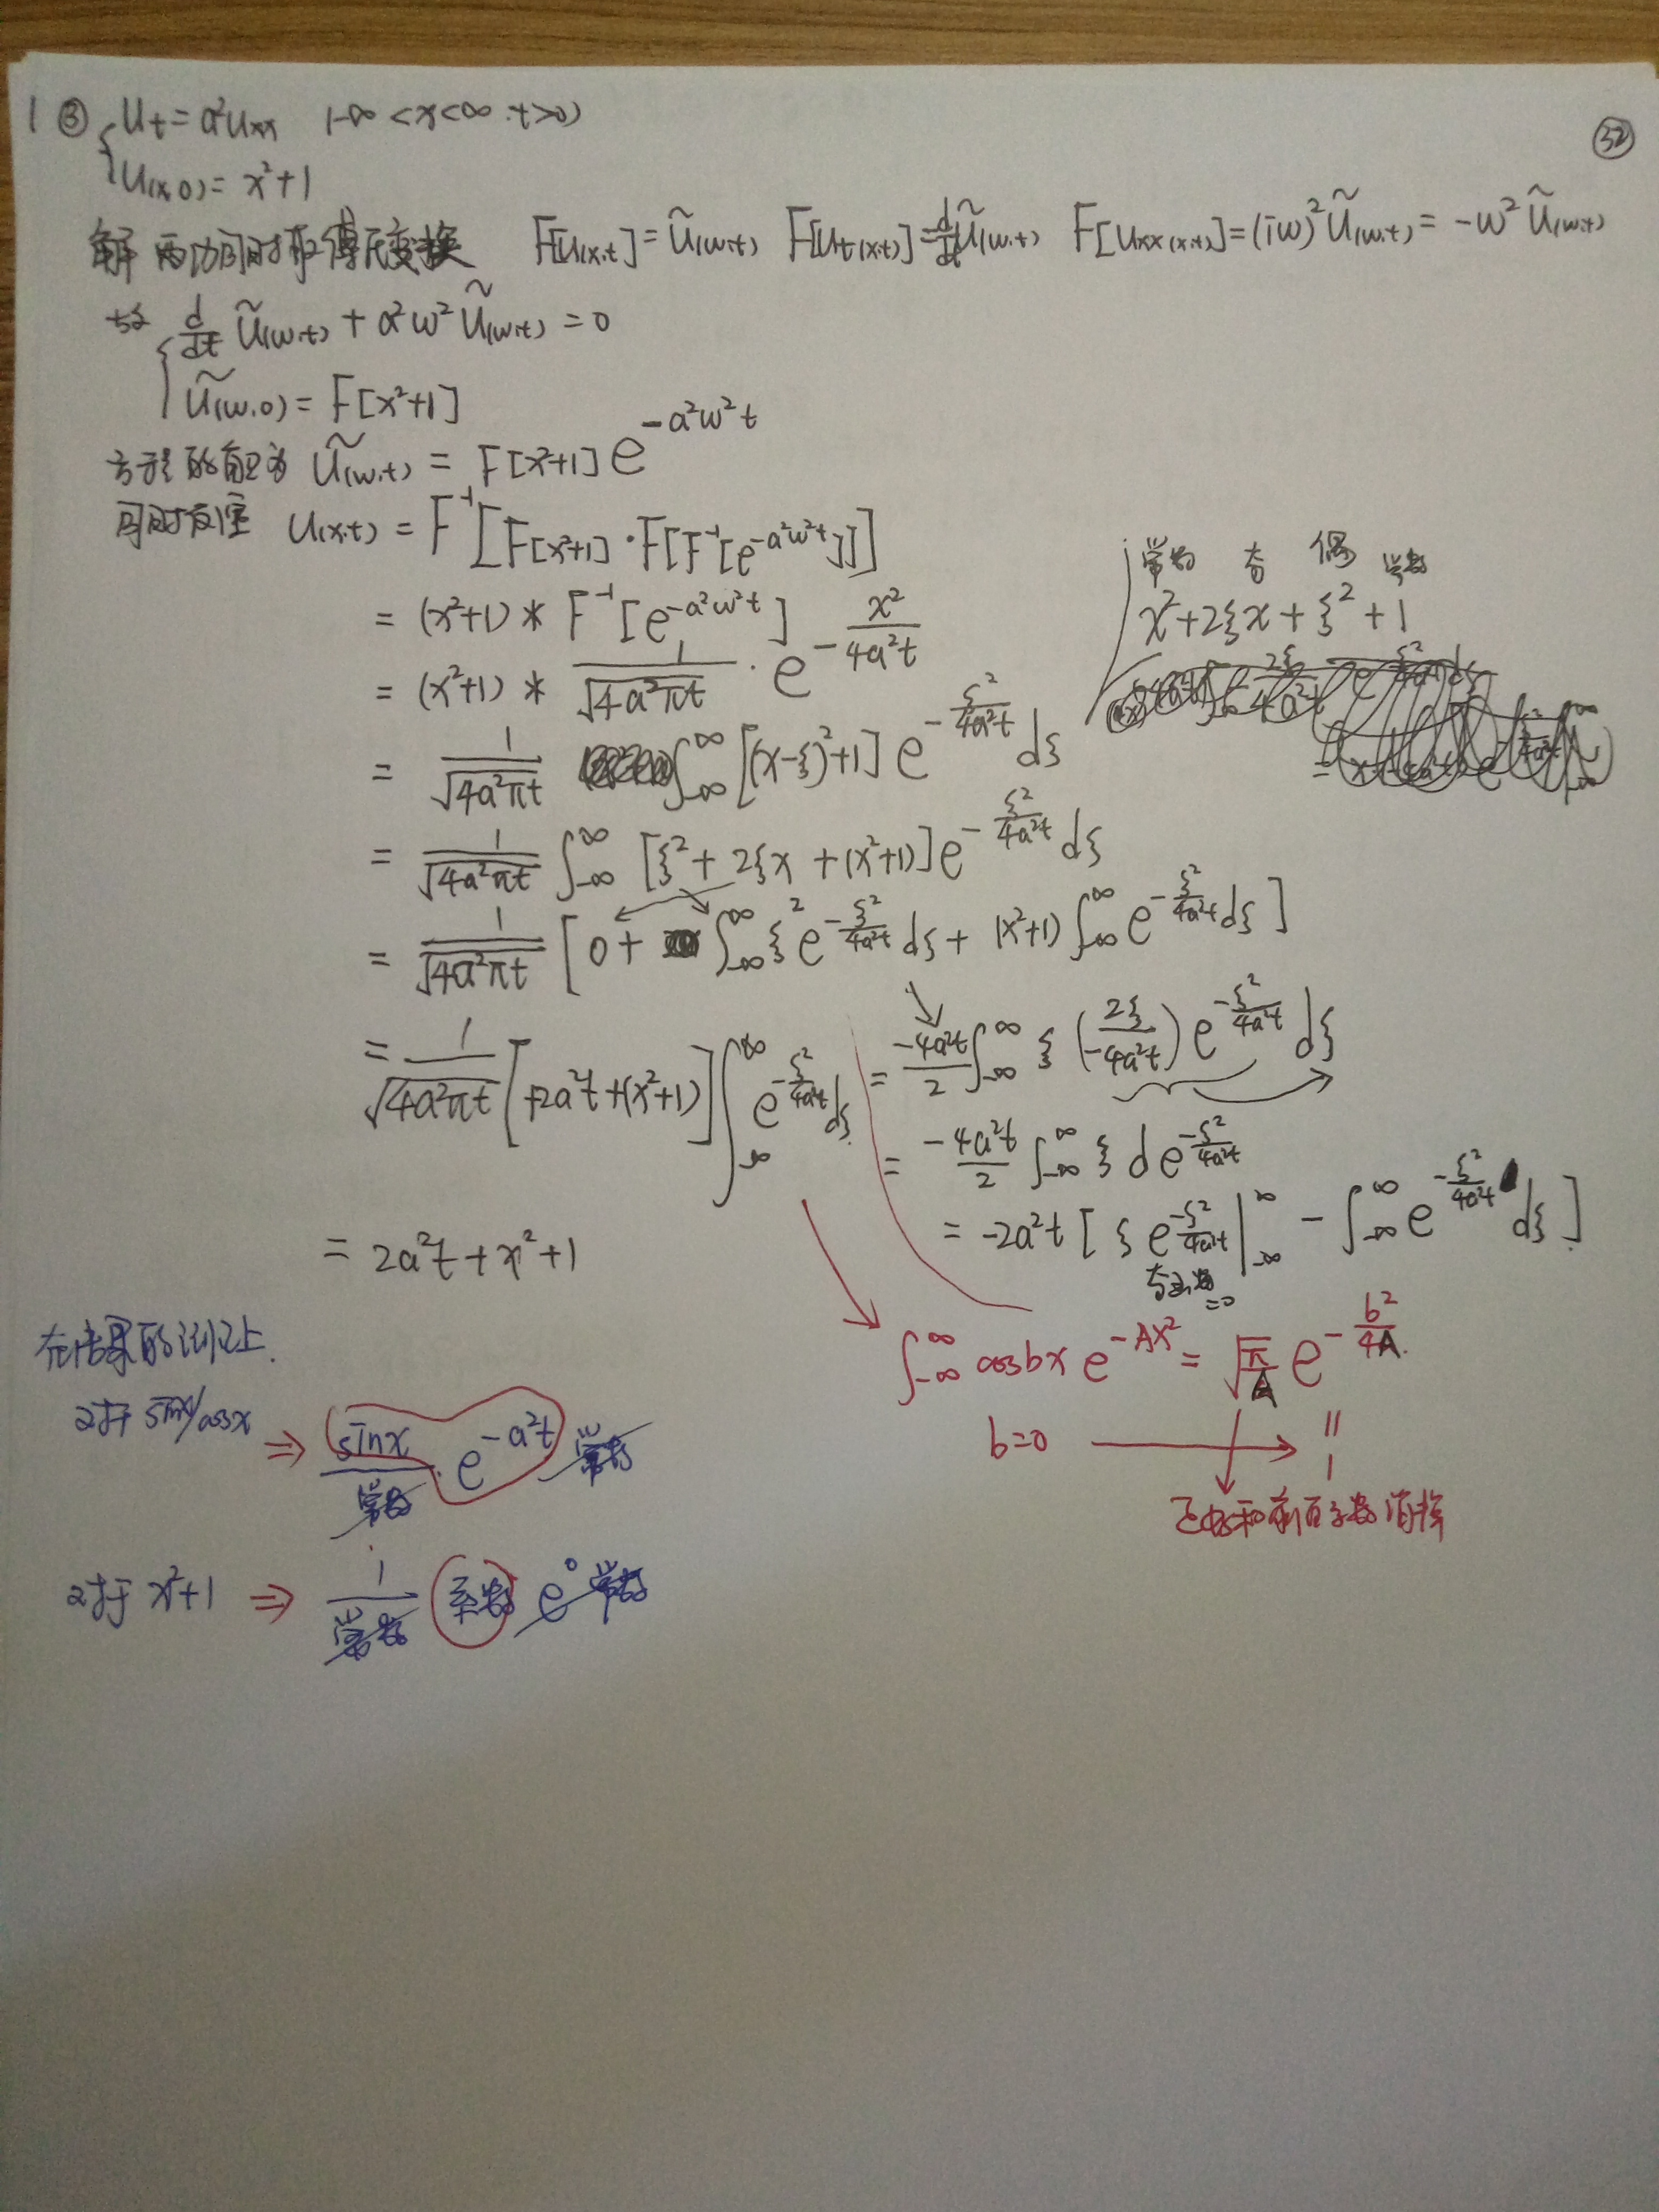 1 ③ { u_t = a²u_xx (-∞ < x < ∞, t > 0)
u(x,0) = x²+1
㉜
解 两边同时取傅氏变换 F[u(x,t)] = ũ(w,t) F[u_t(x,t)] = d/dt ũ(w,t) F[u_xx(x,t)] = (iw)² ũ(w,t) = -w² ũ(w,t)
故 { d/dt ũ(w,t) + a²w² ũ(w,t) = 0
ũ(w,0) = F[x²+1]
方程的解为 ũ(w,t) = F[x²+1] e^(-a²w²t)
同时反演 u(x,t) = F⁻¹[F[x²+1]·F[F⁻¹[e^(-a²w²t)]]]
= (x²+1) * F⁻¹[e^(-a²w²t)]
= (x²+1) * 1/√(4a²πt) · e^(-x²/(4a²t))
常数 奇 偶 常数
x²+2ξx+ξ²+1
= 1/√(4a²πt) ∫_{-∞}^{∞} [(x-ξ)²+1] e^(-ξ²/(4a²t)) dξ
= 1/√(4a²πt) ∫_{-∞}^{∞} [ξ²+2ξx+(x²+1)] e^(-ξ²/(4a²t)) dξ
= 1/√(4a²πt) [0 + ∫_{-∞}^{∞} ξ² e^(-ξ²/(4a²t)) dξ + (x²+1) ∫_{-∞}^{∞} e^(-ξ²/(4a²t)) dξ]
= -4a²t/2 ∫_{-∞}^{∞} ξ (2ξ/(-4a²t)) e^(-ξ²/(4a²t)) dξ
= 1/√(4a²πt) [+2a²t+(x²+1)] ∫_{-∞}^{∞} e^(-ξ²/(4a²t)) dξ
= -4a²t/2 ∫_{-∞}^{∞} ξ d e^(-ξ²/(4a²t))
= -2a²t [ξ e^(-ξ²/(4a²t)) |_{-∞}^{∞} - ∫_{-∞}^{∞} e^(-ξ²/(4a²t)) dξ]
奇函数=0
= 2a²t + x² + 1
∫_{-∞}^{∞} cosbx e^(-Ax²) = √(π/A) e^(-b²/(4A)).
b=0 → = 1
正好和前面系数消掉
在结果的记忆上.
对于 sinx/cosx ⇒ sinx/常数 · e^(-a²t) 常数
对于 x²+1 ⇒ 1/常数 系数 e⁰ 常数